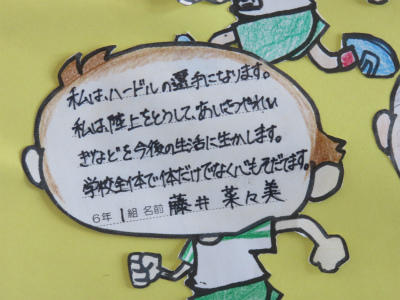 私は、ハードルの選手になります。
私は、陸上をとうして、あいさつやれい
ぎなどを今後の生活に生かします。
学校全体で体だけでなく心もそだてます。
6年 1組 名前 藤井 菜々美